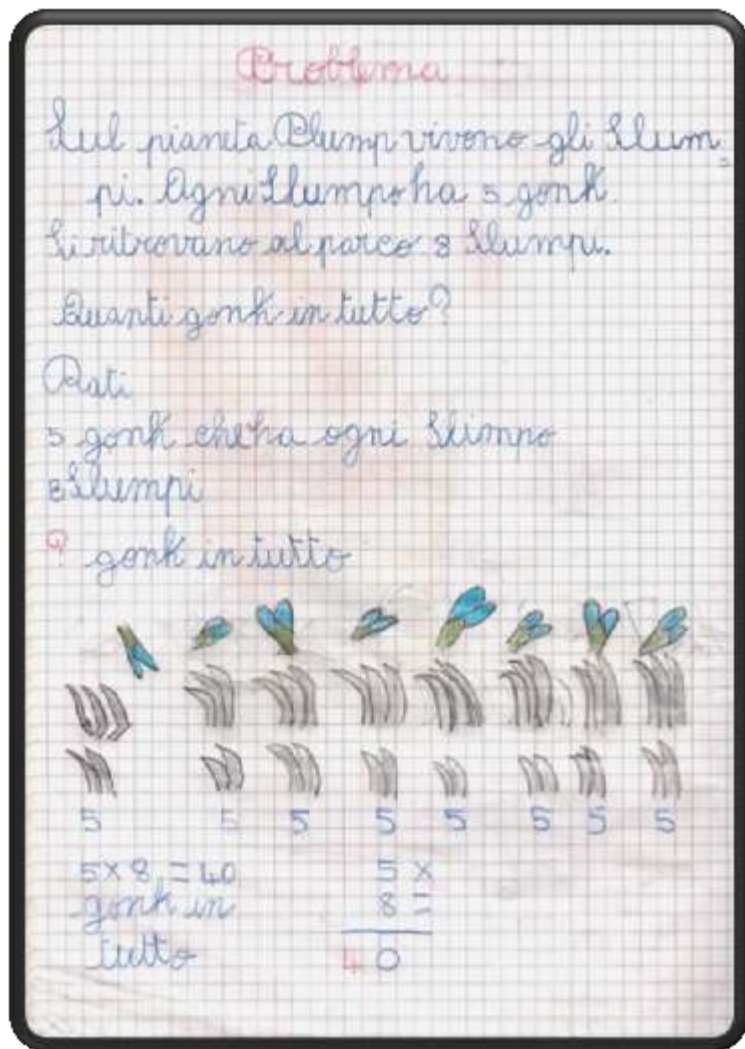 Problema
Sul pianeta Plump vivono gli Slum=
pi. Ogni Slumpo ha 5 gonk.
Si ritrovano al parco 8 Slumpi.
Quanti gonk in tutto?
Dati
5 gonk che ha ogni Slimpo
8 Slumpi
? gonk in tutto
5 5 5 5 5 5 5 5
5×8 = 40
gonk in
tutto
5 ×
8 =
40